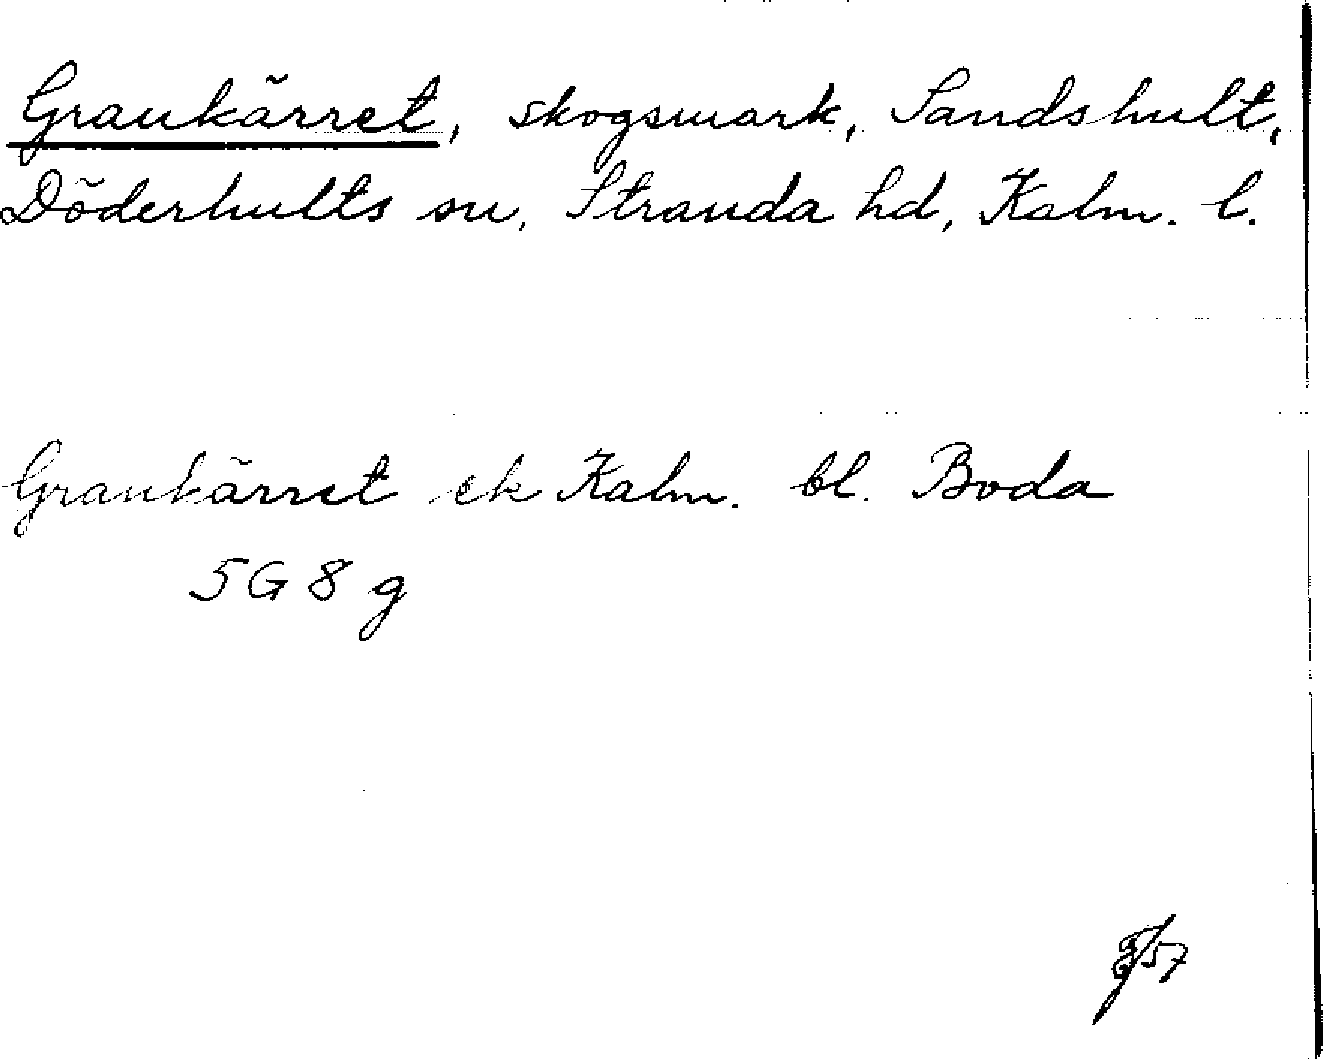 Grankärret, skogsmark, Sandshult,
Döderhults sn, Stranda hd, Kalm. l.
Grankärret ek Kalm. bl. Boda
5G 8 g
57